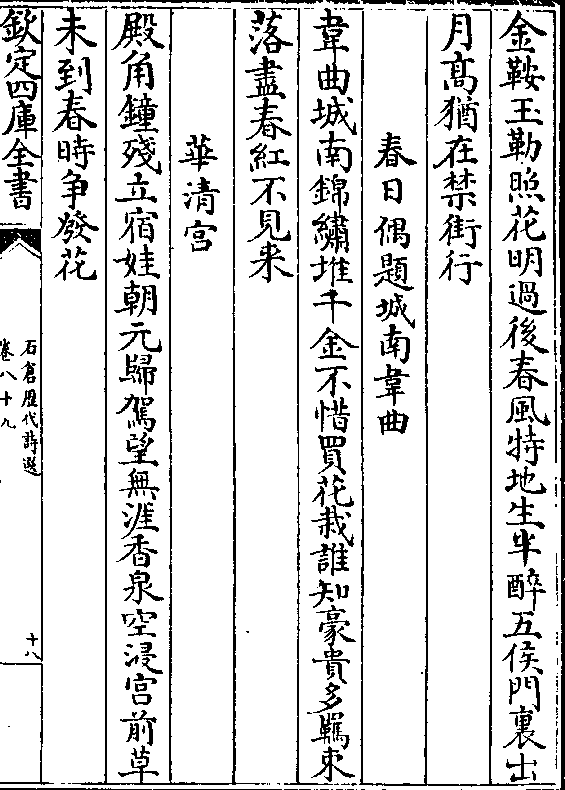 金鞍玉勒照花明過後春風特地生半醉五侯門裏出
月髙猶在禁街行
春日偶題城南韋曲
韋曲城南錦繡堆千金不惜買花栽誰知豪貴多羈束
落盡春紅不見来
華清宫
殿角鐘殘立宿娃朝元歸駕望無涯香泉空浸宫前草
未到春時争發花
欽定四庫全書
石倉歴代詩選
卷八十九
十八